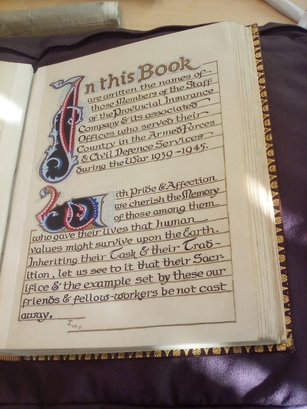 In this Book
are written the names of
those Members of the Staff
of the Provincial Insurance
Company & its associated
Offices who served their
Country in the Armed Forces
& Civil Defence Services
during the War 1939-1945.
With Pride & Affection
we cherish the Memory
of those among them
who gave their lives that human
values might survive upon the Earth.
Inheriting their Task & their Trad-
ition, let us see to it that their Sacr-
ifice & the example set by these our
friends & fellow-workers be not cast
away.